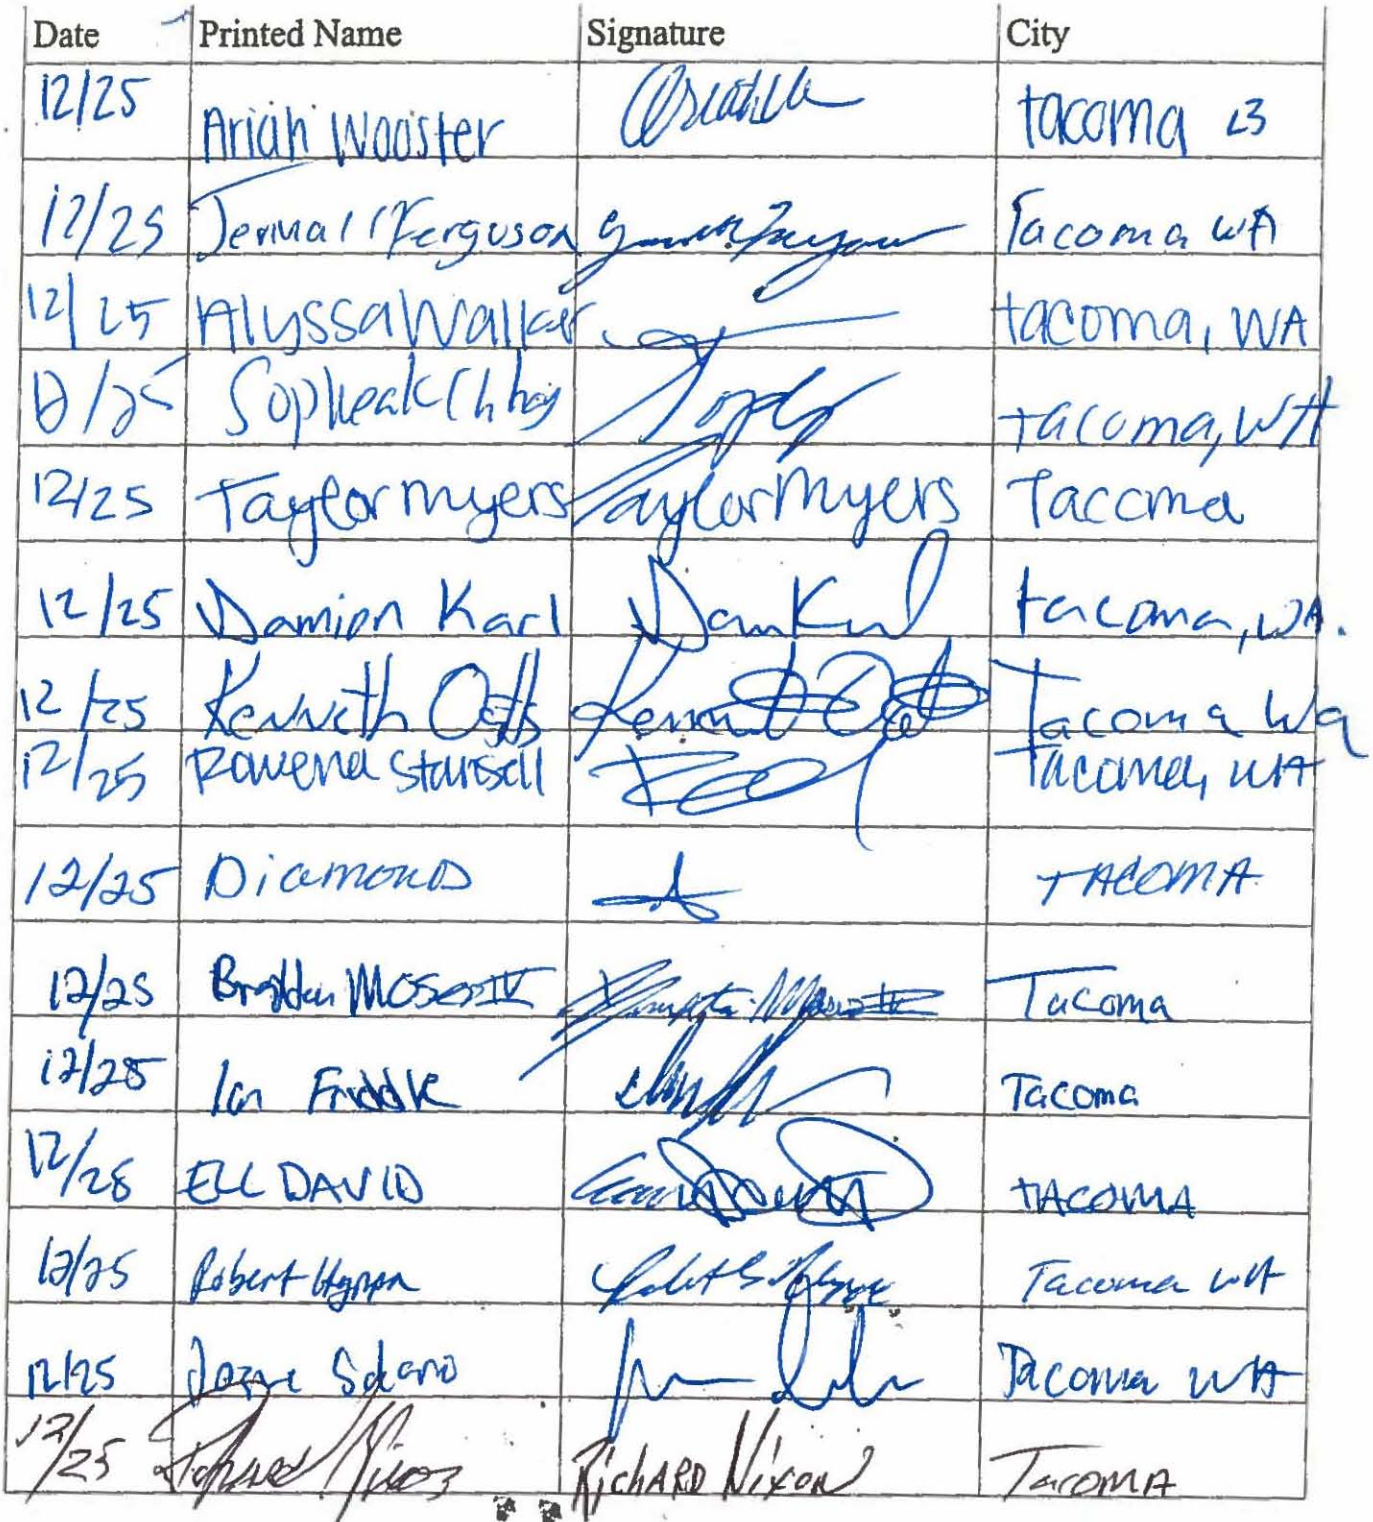 Date Printed Name Signature City
12/25 Ariah Wooster tacoma <3
12/25 Jermall Ferguson Tacoma WA
12/25 Alyssa Walker tacoma, WA
12/25 Sopheak Chhay tacoma, WA
12/25 Taylor Myers Taylor Myers Tacoma
12/25 Damion Karl Dam Karl tacoma, WA.
12/25 Kenneth Kenneth Tacoma Wa
12/25 Rowena Stansell Tacoma, WA
12/25 Diamond TACOMA
12/25 Moser IV Tacoma
12/25 Ian Friddle Tacoma
12/28 ELL DAVID TACOMA
12/25 Robert Tacoma WA
12/25 Solano Tacoma WA
12/25 Richard Nixon RICHARD NIXON TACOMA